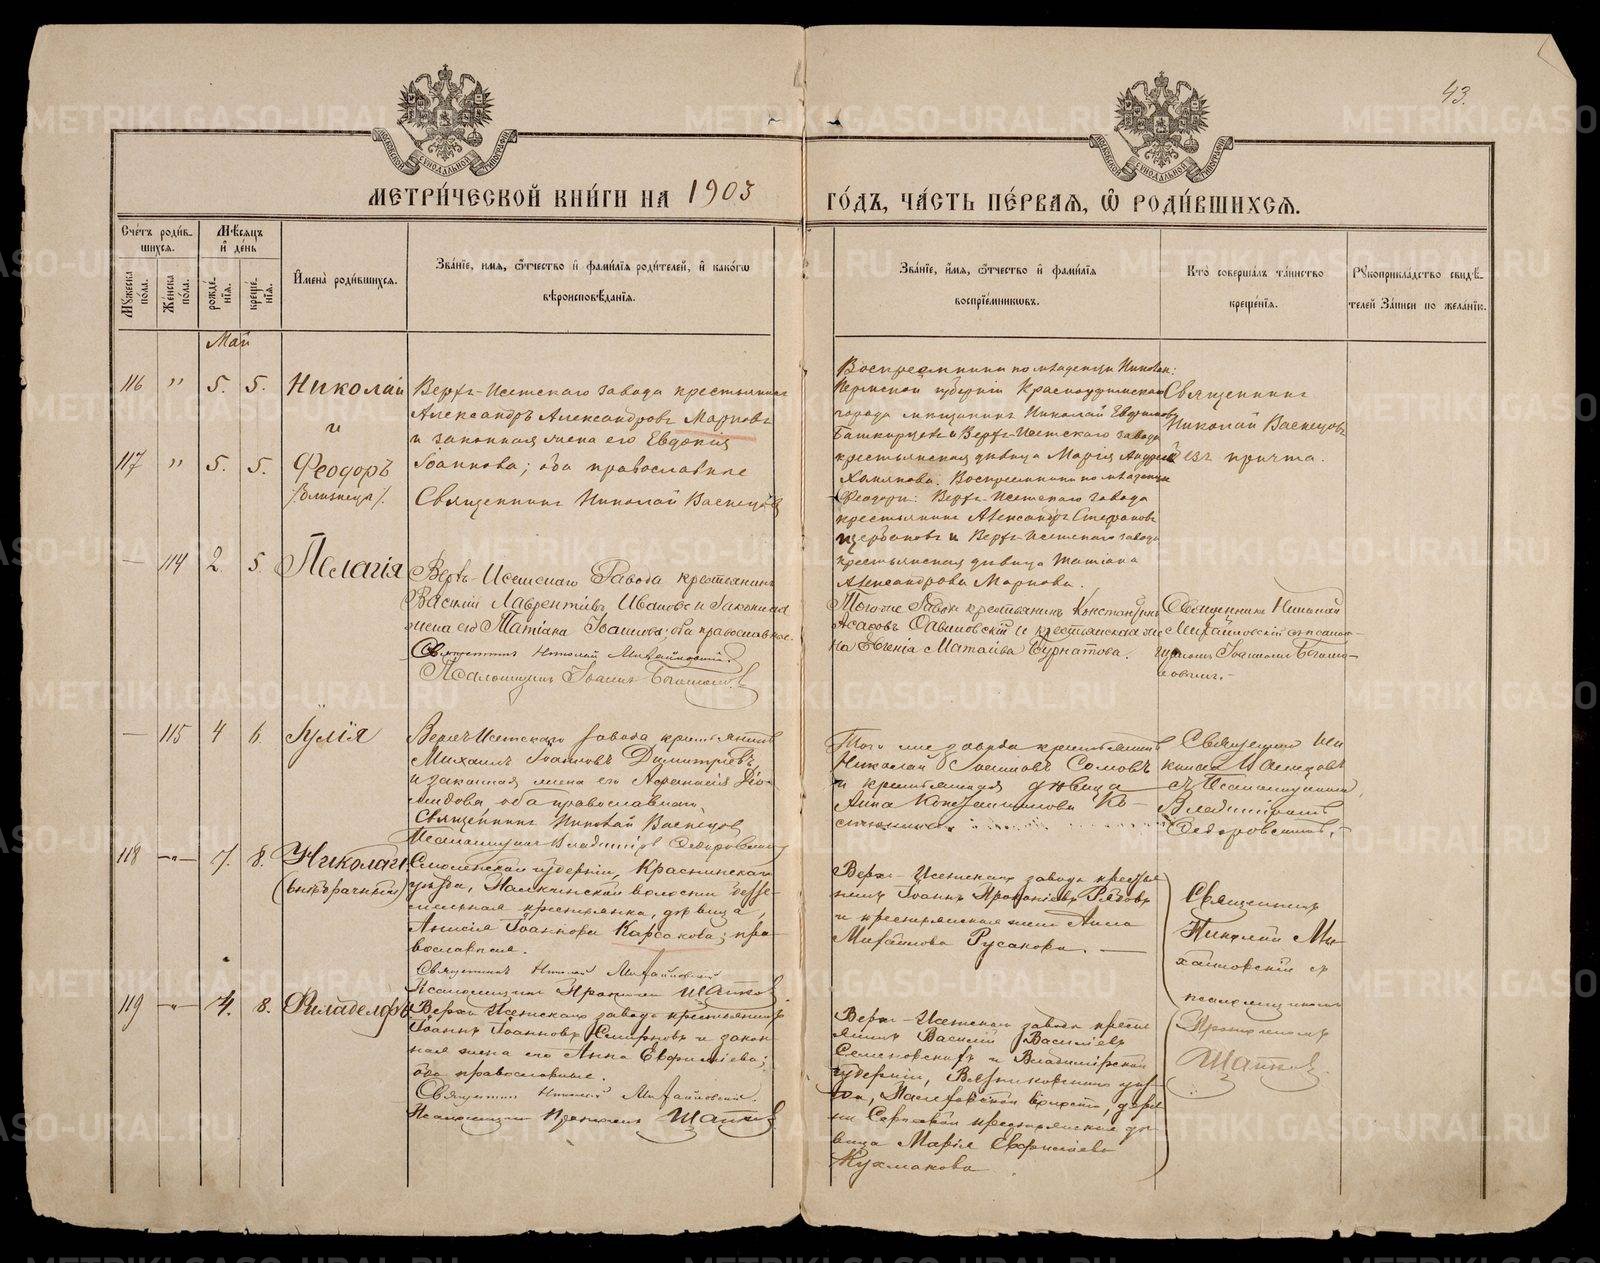 43.
МЕТРИ́ЧЕСКОЙ КНИ́ГИ НА 1903
ГО́ДЪ, ЧА́СТЬ ПЕ́РВАЯ, Ѡ РОДИ́ВШИХСЯ.
Сче́тъ роди́в-
шихся.
Мѣ́сяцъ
и де́нь
Му́жеска
по́ла.
Же́нска
по́ла.
рожде́-
нія.
креще́-
нія.
Имена̀ роди́вшихся.
Зва́ніе, имя, ѻтчество и фами́лія роди́телей, и како́гѡ
вѣроисповѣ́данія.
Зва́ніе, имя, ѻтчество и фами́лія
воспріе́мниковъ.
Кто̀ соверша́лъ та́инство
креще́нія.
Рукоприкла́дство свидѣ́-
телей За́писи по жела́нію.
Май
116 " 5. 5. Николай
и
117 " 5. 5. Ѳеодоръ
/близнецы/.
Верхъ-Исетскаго завода крестьянинъ
Александръ Александровъ Марковъ
и законная жена его Евдокія
Іоаннова; оба православные
Священникъ Николай Васнецовъ
Воспреемники по младенцѣ Николаѣ:
Пермской губерніи Красноуфимскаго
города мѣщанинъ Николай Евфимовъ
Башкирцевъ и Верхъ-Исетскаго завода
крестьянская дѣвица Марія Андреева
Хомякова. Воспреемники по младенцѣ
Ѳеодорѣ: Верхъ-Исетскаго завода
крестьянинъ Александръ Стефановъ
Щербаковъ и Верхъ-Исетскаго завода
крестьянская дѣвица Татіана
Александрова Маркова.
Священникъ
Николай Васнецовъ
безъ причта.
— 114 2. 5. Пелагія
Верхъ-Исетскаго Завода крестьянинъ
Василій Лаврентіевъ Ивановъ и законная
жена его Татіана Іоаннова; оба православные.
Священникъ Николай Михайловскій.
Псаломщикъ Іоаннъ
Того же Завода крестьянинъ Константинъ
Исаковъ Савиновскій и крестьянская же-
на Евгенія Матѳіева Бурматова.
Священникъ Николай
Михайловскій съ псалом-
щикомъ Іоанномъ
— 115 4 6. Іулія
Верхъ-Исетскаго завода крестьянинъ
Михаилъ Іоанновъ Димитріевъ
и законная жена его Аѳанасія Діо-
мидова, оба православные.
Священникъ Николай Васнецов
Псаломщикъ Владиміръ Ѳедоровскій
Того же завода крестьянинъ
Николай Іоанновъ Сомовъ
и крестьянская дѣвица
Анна Константинова Ко-
Священникъ Ни
колай Васнецовъ
съ Псаломщикомъ
Владиміромъ
Ѳедоровскимъ.
118 —"— 7. 8. Николай
(внѣбрачный)
Смоленской губерніи, Краснинскаго
уѣзда, волости беззе-
мельная крестьянка, дѣвица,
Анисія Іоаннова Карсакова; пра-
вославная.
Священникъ Николай Михайловскій
Псаломщикъ Прокопій Шатковъ
Верхъ-Исетскаго завода кресть-
янинъ Іоаннъ Рябовъ
и крестьянская жена Анна
Михаилова Русакова. —
Священникъ
Николай Ми-
хайловскій съ
псаломщикомъ
Прокопіемъ
Шатков.
119 —"— 7. 8. Филаделфъ
Верхъ-Исетскаго завода крестьянинъ
Іоаннъ Іоанновъ Смирновъ и закон-
ная жена его Анна Евфиміева;
оба православные.
Священникъ Николай Михайловскій.
Псаломщикъ Прокопій Шатков
Верхъ-Исетскаго завода кресть-
янинъ Василій Василіевъ
Семеновскихъ и Владимірской
губерніи, Вязниковскаго уѣз-
да, волости, дерев-
ни крестьянская дѣ-
вица Марія Евфиміева
Кухмакова
METRIKI.GASO-URAL.RU